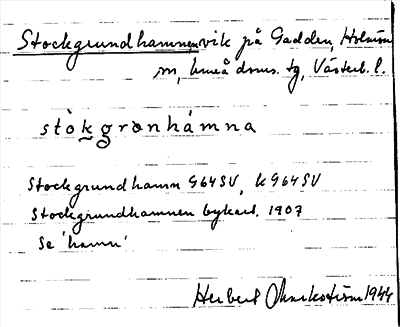 Stockgrundhamnen, vik på Gadden, Holmön
sn, Umeå doms. tg, Västerb. l.
stòkgrənhámna
Stockgrundhamn G64SV, K964SV
Stockgrundhamnen bykart. 1907
Se 'hamn'
Herbert 1944